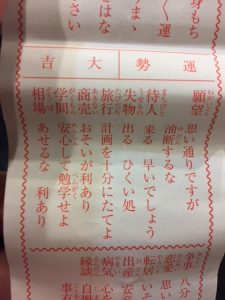 身もち
く運
まゝ
はな
さい
運勢 大吉
願望 思い通りですが
油断するな
待人 来る 早いでしょう
失物 出る ひくい処
旅行 計画を十分にたてよ
商売 おそいが利あり
学問 安心して勉学せよ
相場 あせるな 利あり
争事 八分
恋愛 思
転居 いそ
出産 安
病気 心を
縁談